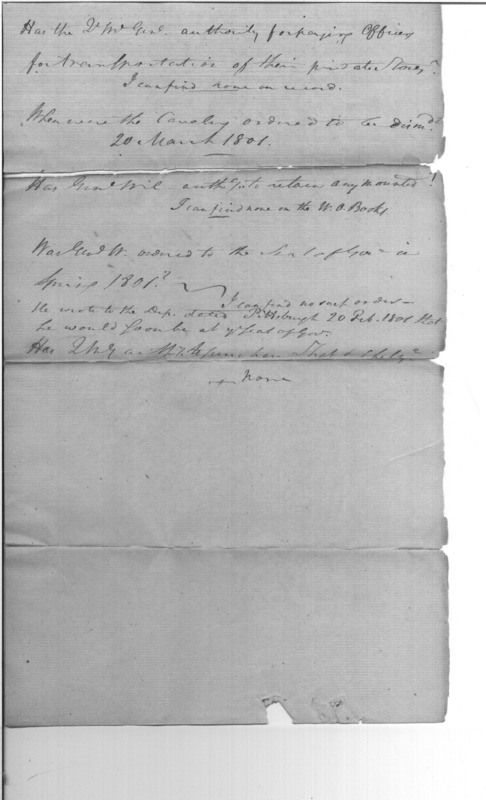 Has the Qr Mr Genl. authority for paying Officers
for transportation of their private Stores?
I can find none on record.
When were the Cavalry ordered to be dismd?
20 March 1801.
Has Genl Wil authy to retain any mounted!
I can find none on the W. O. Books
Was Genl W. ordered to the Seat of Gov in
Spring 1801?
I can find no such orders –
He wrote to the Dep. dated Pittsburgh 20 Feb. 1801 that
he would soon be at ye Seat of Gov.
Has
None